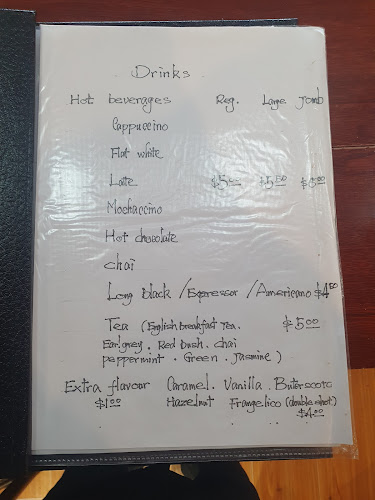 Drinks
Hot beverages Reg. Large Jomb
Cappuccino
Flat white
Latte $5.00 $5.50 $6.00
Mochaccino
Hot chocolate
chai
Long Black / Espressor / Americano $4.50
Tea (English breakfast Tea. $5.00
Earl grey. Red bush. chai
peppermint. Green. Jasmine)
Extra flavour Caramel. Vanilla. Buterscotc
$1.00 Hazelnut Frangelico (double shot)
$4.00